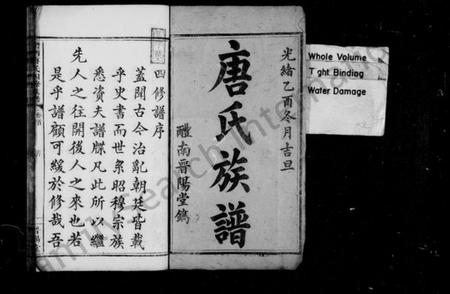 光緒乙酉冬月吉旦
唐氏族譜
醴南晉陽堂鐫
四修譜序
蓋聞古今治亂朝廷皆載
乎史書而世系昭穆宗族
悉資夫譜牒凡此所以繼
先人之往開後人之來也若
是乎譜顧可緩於修哉吾
Whole Volume
Tight Binding
Water Damage
FamilySearch International